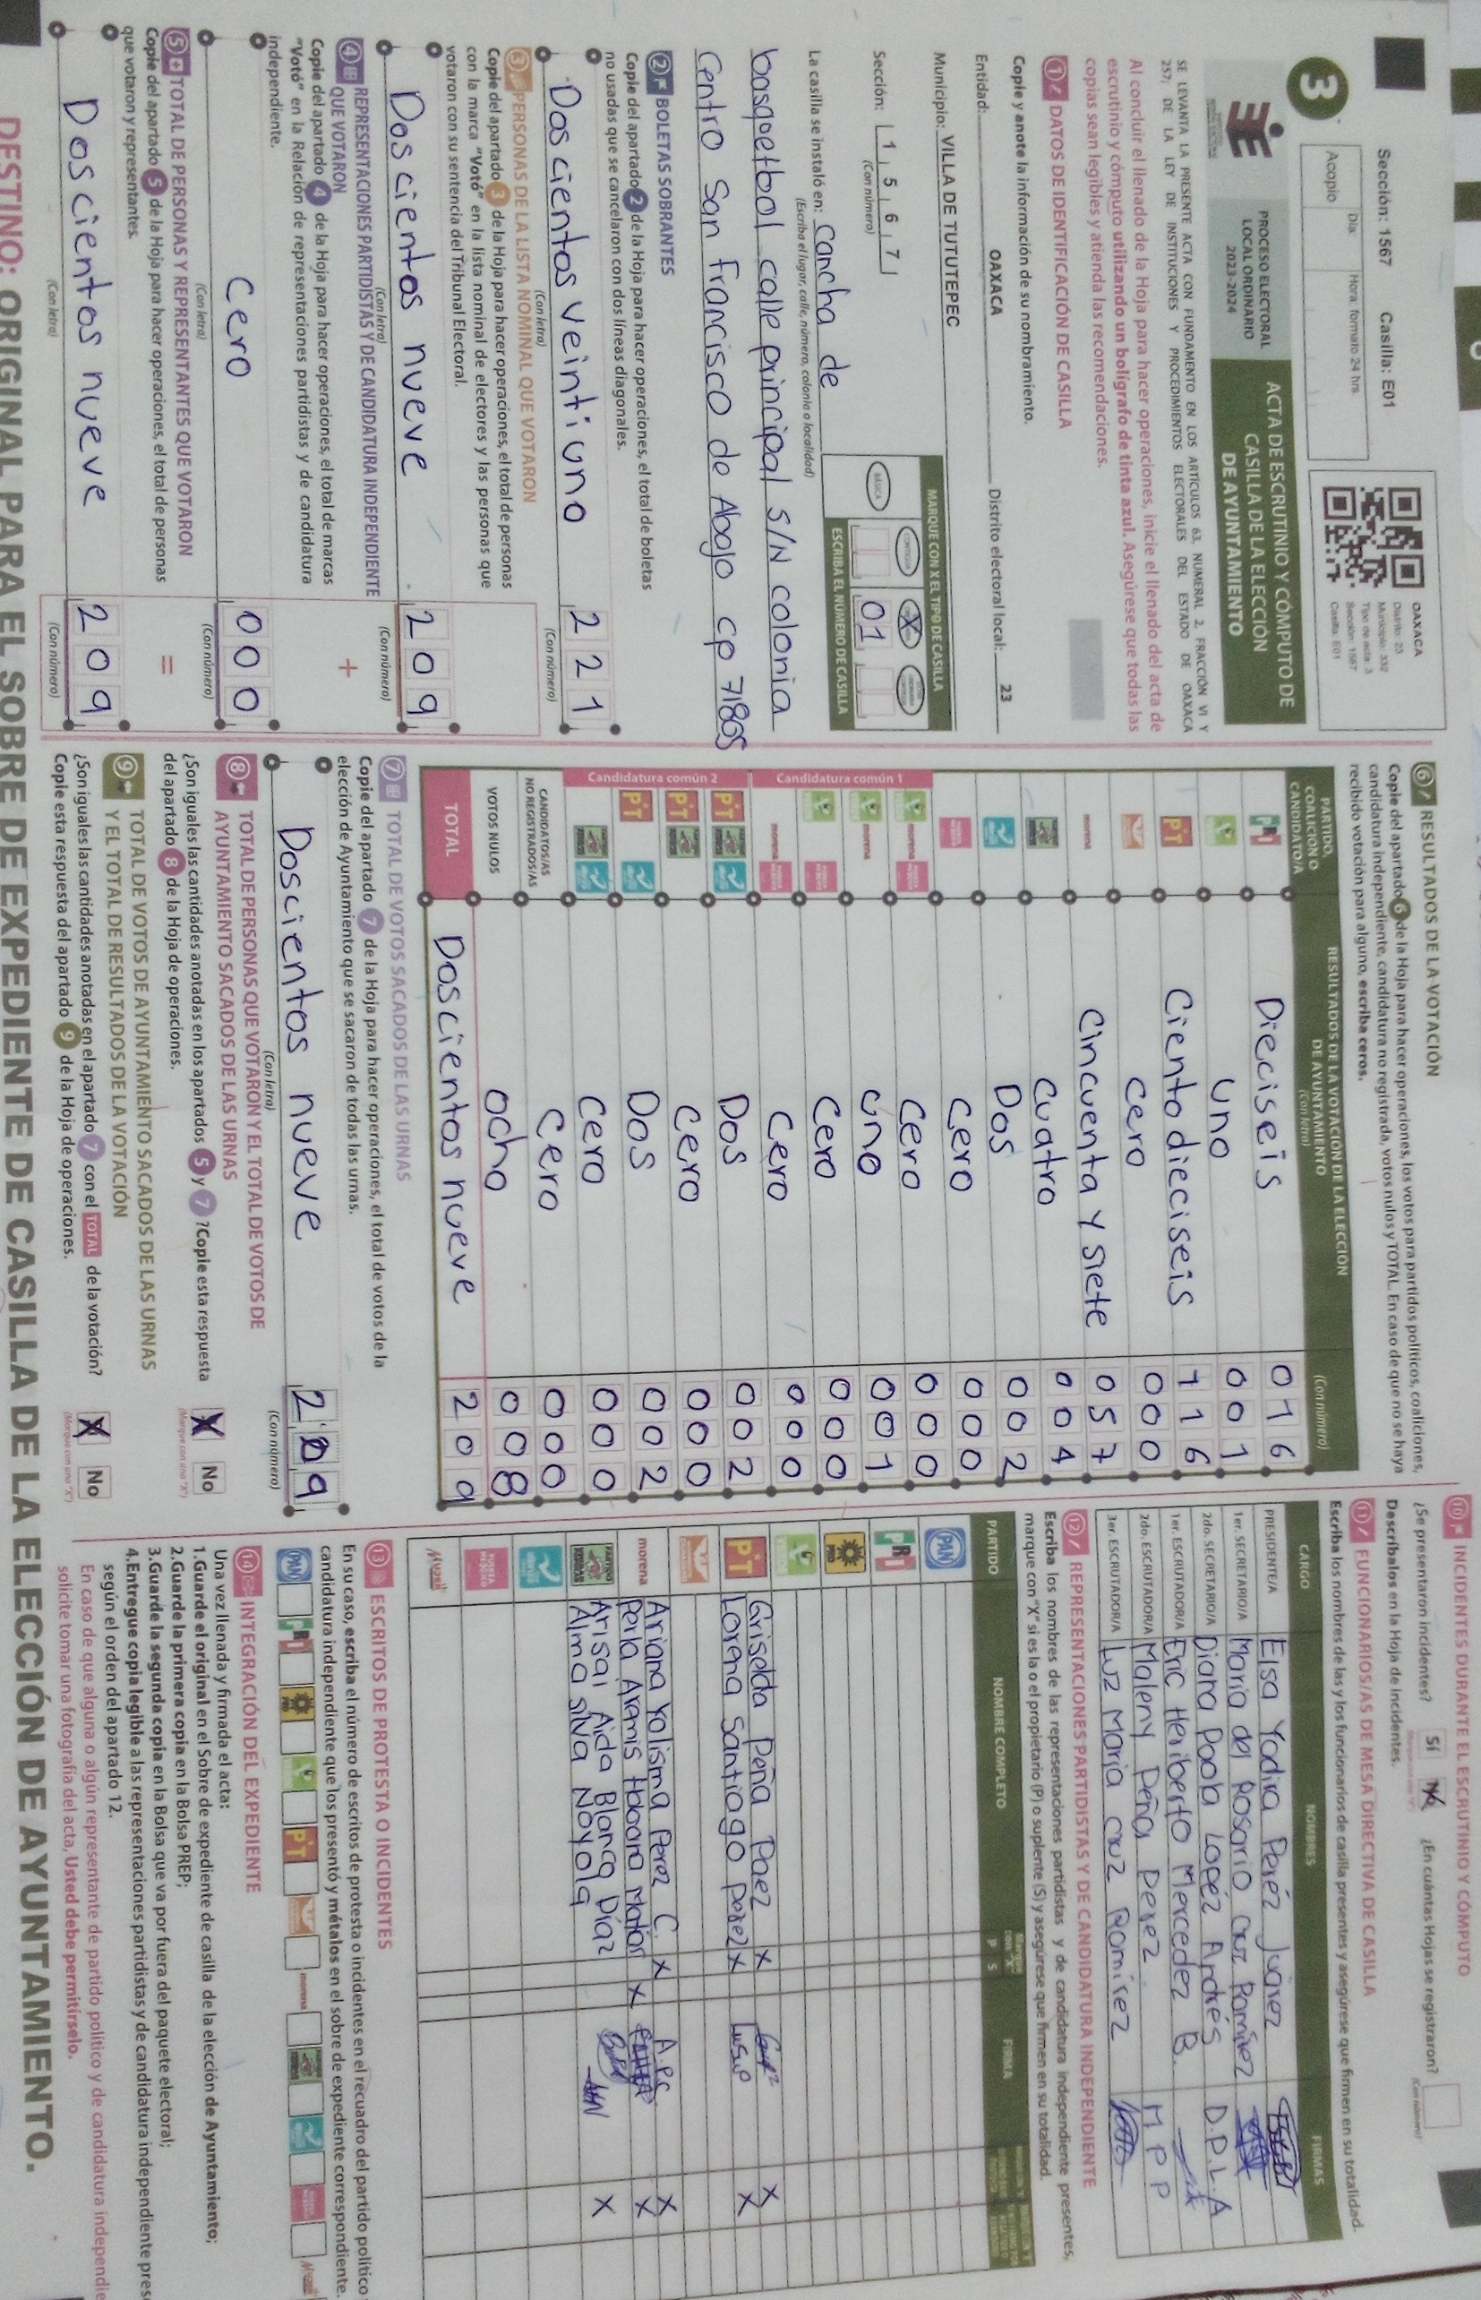 Sección: 1567 Casilla: E01
3
Acopio
Día:
Hora: formato 24 hrs.
OAXACA
Distrito: 23
Municipio: 332
Tipo de acta: 3
Sección: 1567
Casilla: E01
PROCESO ELECTORAL
LOCAL ORDINARIO
2023-2024
ACTA DE ESCRUTINIO Y CÓMPUTO DE
CASILLA DE LA ELECCIÓN
DE AYUNTAMIENTO
SE LEVANTA LA PRESENTE ACTA CON FUNDAMENTO EN LOS ARTÍCULOS 63, NUMERAL 2, FRACCIÓN VI Y
257; DE LA LEY DE INSTITUCIONES Y PROCEDIMIENTOS ELECTORALES DEL ESTADO DE OAXACA
Al concluir el llenado de la Hoja para hacer operaciones, inicie el llenado del acta de
escrutinio y cómputo utilizando un bolígrafo de tinta azul. Asegúrese que todas las
copias sean legibles y atienda las recomendaciones.
1 DATOS DE IDENTIFICACIÓN DE CASILLA
Copie y anote la información de su nombramiento.
Entidad: OAXACA Distrito electoral local: 23
Municipio: VILLA DE TUTUTEPEC
Sección: 1 5 6 7
(Con número)
MARQUE CON X EL TIPO DE CASILLA
BÁSICA
X
01
ESCRIBA EL NÚMERO DE CASILLA
La casilla se instaló en: cancha de
(Escriba el lugar, calle, número, colonia o localidad)
basquetbol calle principal S/N colonia
Centro San Francisco de Abajo cp 71805
2 BOLETAS SOBRANTES
Copie del apartado 2 de la Hoja para hacer operaciones, el total de boletas
no usadas que se cancelaron con dos líneas diagonales.
Doscientos veintiuno 221
(Con letra) (Con número)
3 PERSONAS DE LA LISTA NOMINAL QUE VOTARON
Copie del apartado 3 de la Hoja para hacer operaciones, el total de personas
con la marca "Votó" en la lista nominal de electores y las personas que
votaron con su sentencia del Tribunal Electoral.
Doscientos nueve 209
(Con letra) (Con número)
4 REPRESENTACIONES PARTIDISTAS Y DE CANDIDATURA INDEPENDIENTE
QUE VOTARON
+
Copie del apartado 4 de la Hoja para hacer operaciones, el total de marcas
"Votó" en la Relación de representaciones partidistas y de candidatura
independiente.
Cero 000
(Con letra) (Con número)
5 TOTAL DE PERSONAS Y REPRESENTANTES QUE VOTARON
=
Copie del apartado 5 de la Hoja para hacer operaciones, el total de personas
que votaron y representantes.
Doscientos nueve 209
(Con letra) (Con número)
6 RESULTADOS DE LA VOTACIÓN
Copie del apartado 6 de la Hoja para hacer operaciones, los votos para partidos políticos, coaliciones,
candidatura independiente, candidatura no registrada, votos nulos y TOTAL. En caso de que no se haya
recibido votación para alguno, escriba ceros.
PARTIDO,
COALICIÓN O
CANDIDATO/A
RESULTADOS DE LA VOTACIÓN DE LA ELECCIÓN
DE AYUNTAMIENTO
(Con letra)
(Con número)
PRI Dieciseis 016
uno 001
PT Ciento dieciseis 116
cero 000
morena Cincuenta y siete 057
Cuatro 004
Dos 002
Cero 000
Candidatura común 1
morena Cero 000
morena uno 001
Cero 000
morena Cero 000
Candidatura común 2
PT Dos 002
PT Cero 000
PT Dos 002
Cero 000
CANDIDATOS/AS
NO REGISTRADOS/AS
Cero 000
VOTOS NULOS ocho 008
TOTAL Doscientos nueve 209
7 TOTAL DE VOTOS SACADOS DE LAS URNAS
Copie del apartado 7 de la Hoja para hacer operaciones, el total de votos de la
elección de Ayuntamiento que se sacaron de todas las urnas.
Doscientos nueve 209
(Con letra) (Con número)
8 TOTAL DE PERSONAS QUE VOTARON Y EL TOTAL DE VOTOS DE
AYUNTAMIENTO SACADOS DE LAS URNAS
¿Son iguales las cantidades anotadas en los apartados 5 y 7 ? Copie esta respuesta
del apartado 8 de la Hoja de operaciones.
X No
(Marque con una "X")
9 TOTAL DE VOTOS DE AYUNTAMIENTO SACADOS DE LAS URNAS
Y EL TOTAL DE RESULTADOS DE LA VOTACIÓN
¿Son iguales las cantidades anotadas en el apartado 7 con el TOTAL de la votación?
Copie esta respuesta del apartado 9 de la Hoja de operaciones.
X No
(Marque con una "X")
10 INCIDENTES DURANTE EL ESCRUTINIO Y CÓMPUTO
¿Se presentaron incidentes? Sí X ¿En cuántas Hojas se registraron?
(Con número)
Descríbalos en la Hoja de Incidentes.
11 FUNCIONARIOS/AS DE MESA DIRECTIVA DE CASILLA
Escriba los nombres de las y los funcionarios de casilla presentes y asegúrese que firmen en su totalidad.
CARGO NOMBRES FIRMAS
PRESIDENTE/A Elsa Yadira Peréz Juárez
1er. SECRETARIO/A Maria del Rosario Cruz Ramirez
2do. SECRETARIO/A Diana Paola Lopéz Andrés D.P.L.A
1er. ESCRUTADOR/A Eric Heriberto Mercedez B.
2do. ESCRUTADOR/A Maleny Peña Perez. M P P
3er. ESCRUTADOR/A Luz Maria cruz Ramirez
12 REPRESENTACIONES PARTIDISTAS Y DE CANDIDATURA INDEPENDIENTE
Escriba los nombres de las representaciones partidistas y de candidatura independiente presentes,
marque con "X" si es la o el propietario (P) o suplente (S) y asegúrese que firmen en su totalidad.
PARTIDO NOMBRE COMPLETO P S FIRMA
PAN
PRI
PRD
Griselda Peña Paez X X
PT Lorena Santiago perez X X
Ariana Yolisma Perez C. X A.P.C. X
morena Perla Aramis X X
Arisai Aida Blanca Díaz X
Alma silva Noyola
13 ESCRITOS DE PROTESTA O INCIDENTES
En su caso, escriba el número de escritos de protesta o incidentes en el recuadro del partido político
candidatura independiente que los presentó y métalos en el sobre de expediente correspondiente.
PAN PRI PRD PT morena
14 INTEGRACIÓN DEL EXPEDIENTE
Una vez llenada y firmada el acta:
1.Guarde el original en el Sobre de expediente de casilla de la elección de Ayuntamiento;
2.Guarde la primera copia en la Bolsa PREP;
3.Guarde la segunda copia en la Bolsa que va por fuera del paquete electoral;
4.Entregue copia legible a las representaciones partidistas y de candidatura independiente pres
según el orden del apartado 12.
En caso de que alguna o algún representante de partido político y de candidatura independie
solicite tomar una fotografía del acta, Usted debe permitírselo.
DESTINO: ORIGINAL PARA EL SOBRE DE EXPEDIENTE DE CASILLA DE LA ELECCIÓN DE AYUNTAMIENTO.